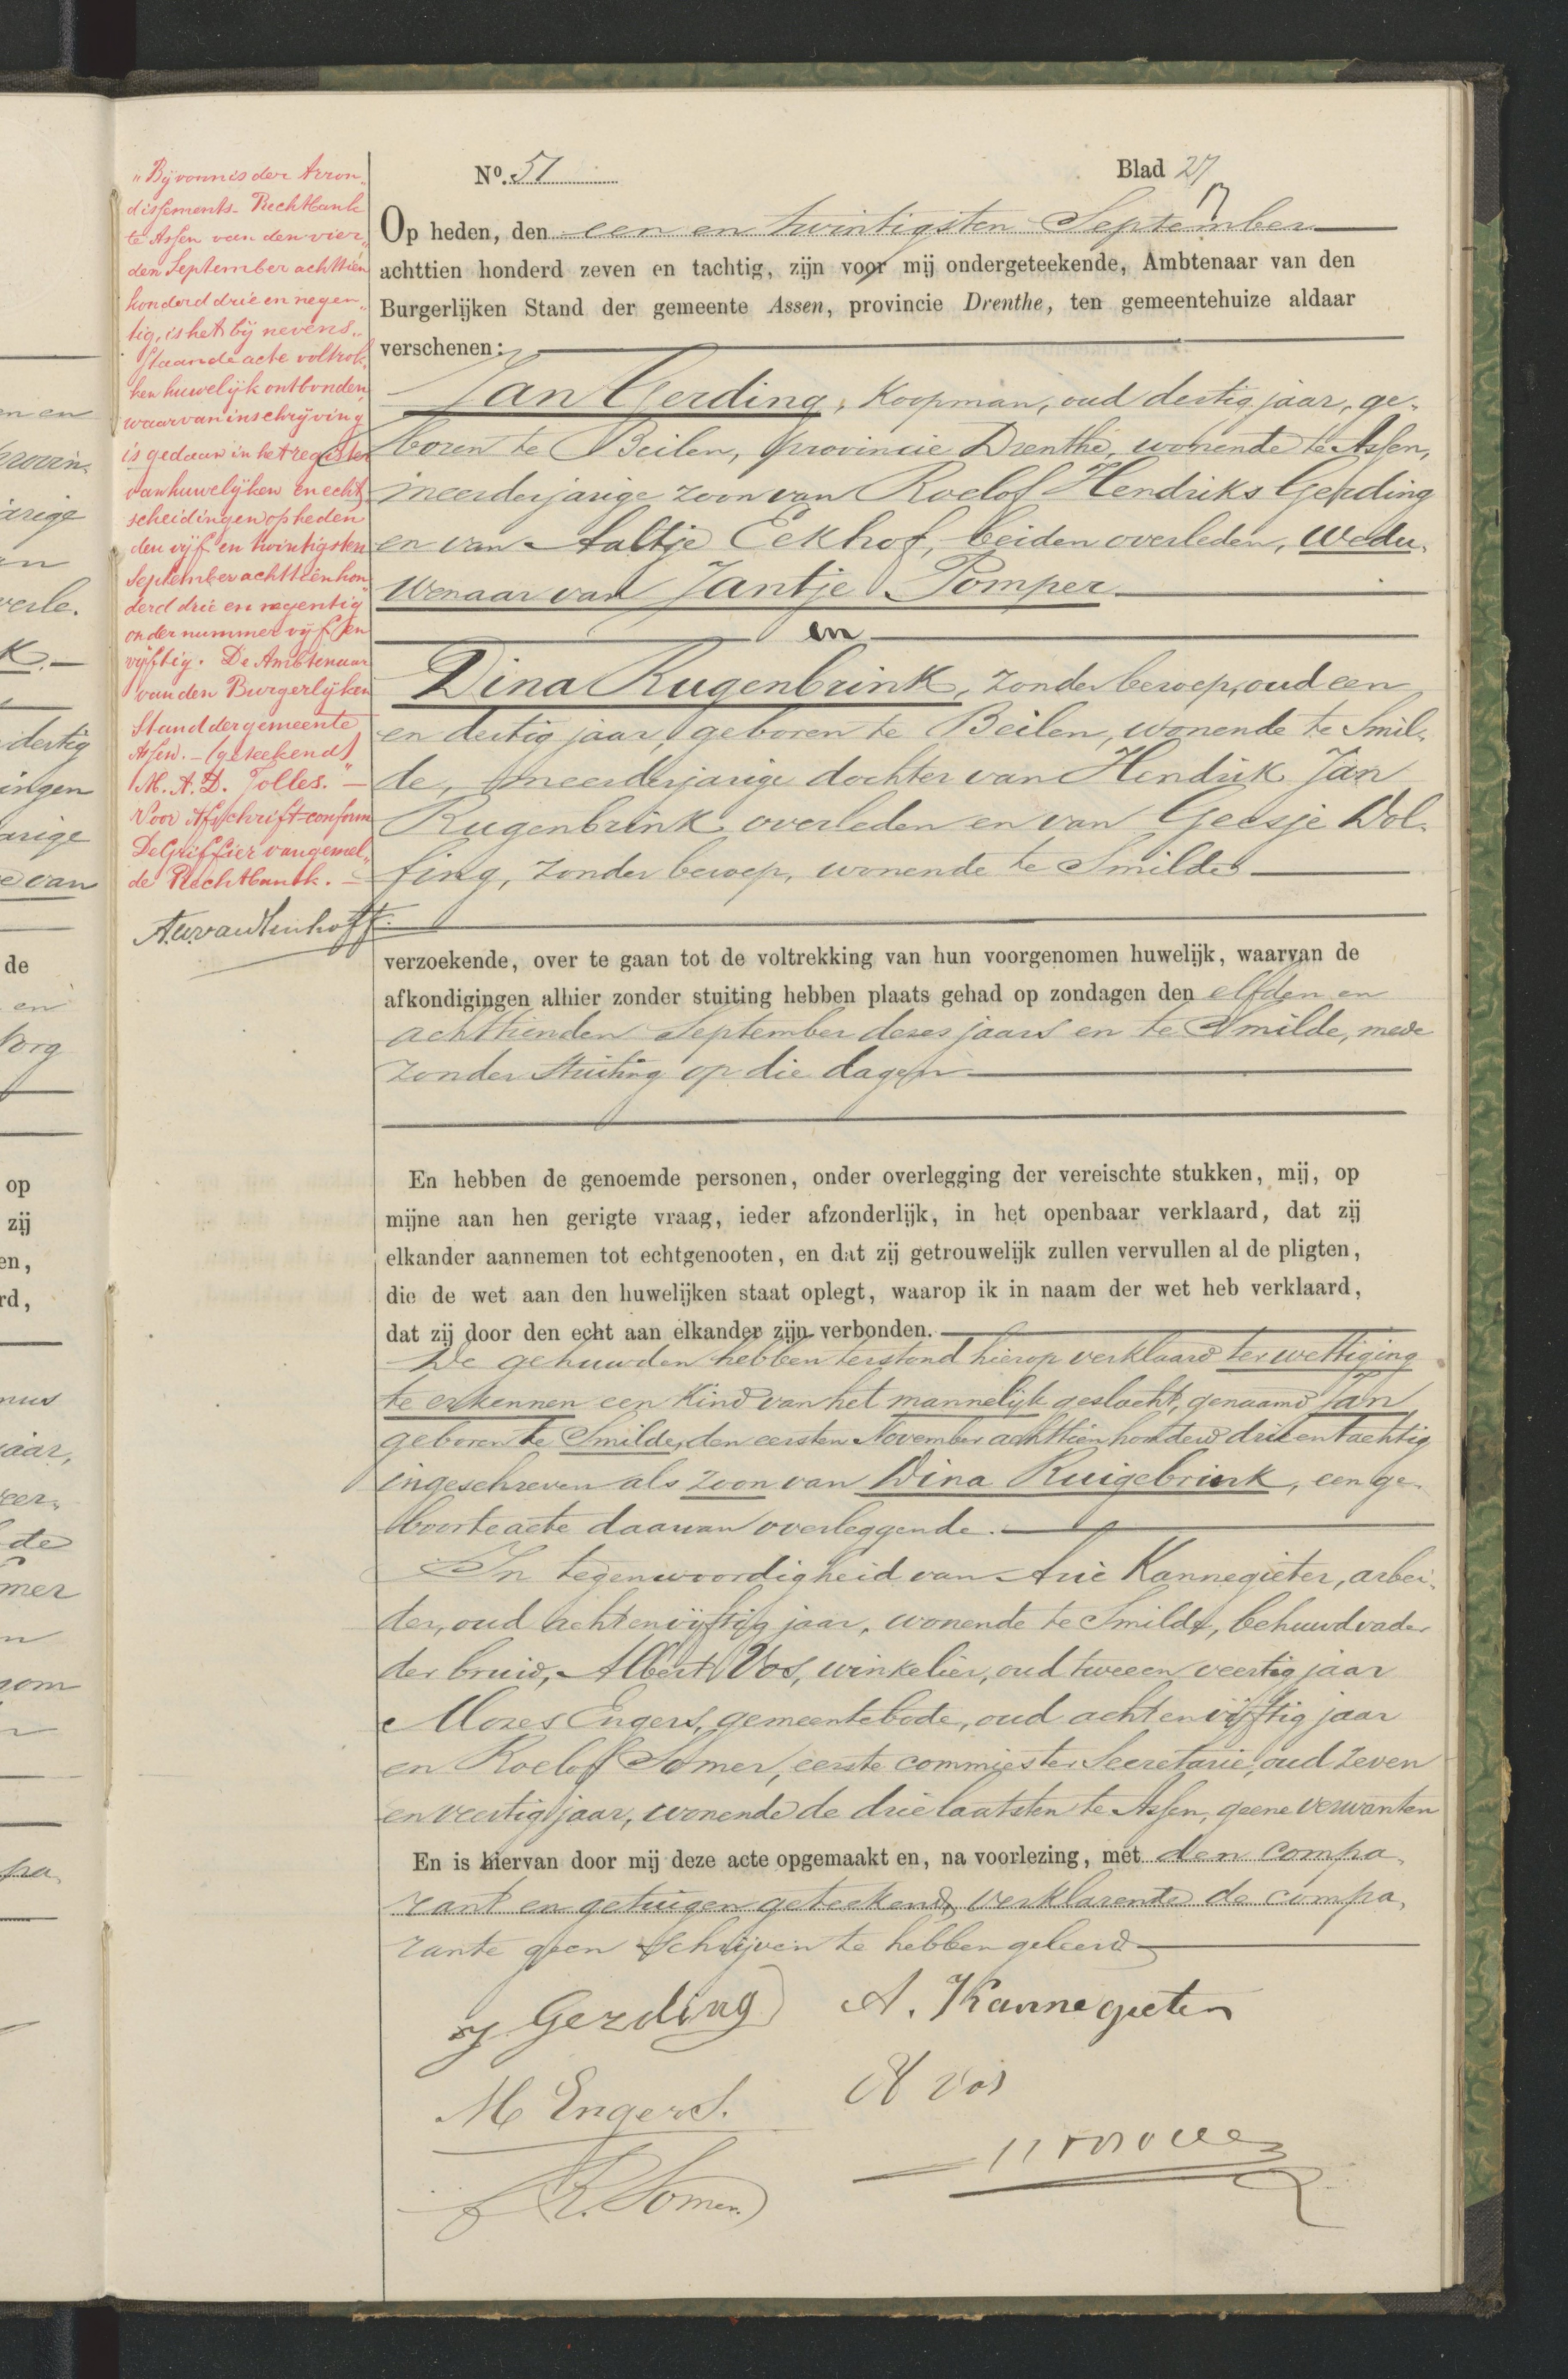 No. 51
Blad 27
Op heden, den een en twintigsten September
achttien honderd zeven en tachtig, zijn voor mij ondergeteekende, Ambtenaar van den
Burgerlijken Stand der gemeente Assen, provincie Drenthe, ten gemeentehuize aldaar
verschenen:
Jan Gerding, Koopman, oud dertig jaar, ge-
boren te Beilen, provincie Drenthe, wonende te Assen,
meerderjarige zoon van Roelof Hendriks Gerding
en van Aaltje Eekhof, beiden overleden, wedu-
wenaar van Jantje Pomper
en
Dina Rugenbrink, zonder beroep, oud een
en dertig jaar, geboren te Beilen, wonende te Smil-
de, meerderjarige dochter van Hendrik Jan
Rugenbrink overleden en van Geesje Wol-
fing, zonder beroep, wonende te Smilde
verzoekende, over te gaan tot de voltrekking van hun voorgenomen huwelijk, waarvan de
afkondigingen alhier zonder stuiting hebben plaats gehad op zondagen den elfden en
achttienden September dezes jaars en te Smilde, mede
zonder stuiting op die dagen
En hebben de genoemde personen, onder overlegging der vereischte stukken, mij, op
mijne aan hen gerigte vraag, ieder afzonderlijk, in het openbaar verklaard, dat zij
elkander aannemen tot echtgenooten, en dat zij getrouwelijk zullen vervullen al de pligten,
die de wet aan den huwelijken staat oplegt, waarop ik in naam der wet heb verklaard,
dat zij door den echt aan elkander zijn verbonden.
De gehuwden hebben terstond hierop verklaard ter wettiging
te erkennen een kind van het mannelijk geslacht, genaamd Jan
geboren te Smilde, den eersten November achttien honderd drie en tachtig
ingeschreven als zoon van Dina Ruigebrink, een ge-
boorteacte daarvan overleggende.
In tegenwoordigheid van Arie Kannegieter, arbei-
der, oud acht en vijftig jaar, wonende te Smilde, behuwdvader
der bruid, Albert Vos, winkelier, oud twee en veertig jaar
Mozes Engers, gemeentebode, oud acht en vijftig jaar
en Roelof Somer, eerste commies ter Secretarie, oud zeven
en veertig jaar, wonende de drie laatsten te Assen, geene verwanten
En is hiervan door mij deze acte opgemaakt en, na voorlezing, met den compa-
rant en getuigen geteekend, verklarende de compa-
rante geen schrijven te hebben geleerd
J Gerding
A. Kannegieter
M Engers.
A Vos
R. Somer.
„Bij vonnis der Arron-
dissements-Rechtbank
te Assen van den vier-
den September achttien
honderd drie en negen-
tig, is het bij nevens-
staande acte voltrok-
ken huwelijk ontbonden,
waarvan inschrijving
is gedaan in het register
van huwelijken en echt-
scheidingen op heden
den vijf en twintigsten
September achttien hon
derd drie en negentig
onder nummer vijf en
vijftig. De Ambtenaar
van den Burgerlijken
Stand der gemeente
Assen. - (geteekend)
M. A. D. Jolles."
Voor Afschrift conform
De Griffier van gemel-
de Rechtbank.